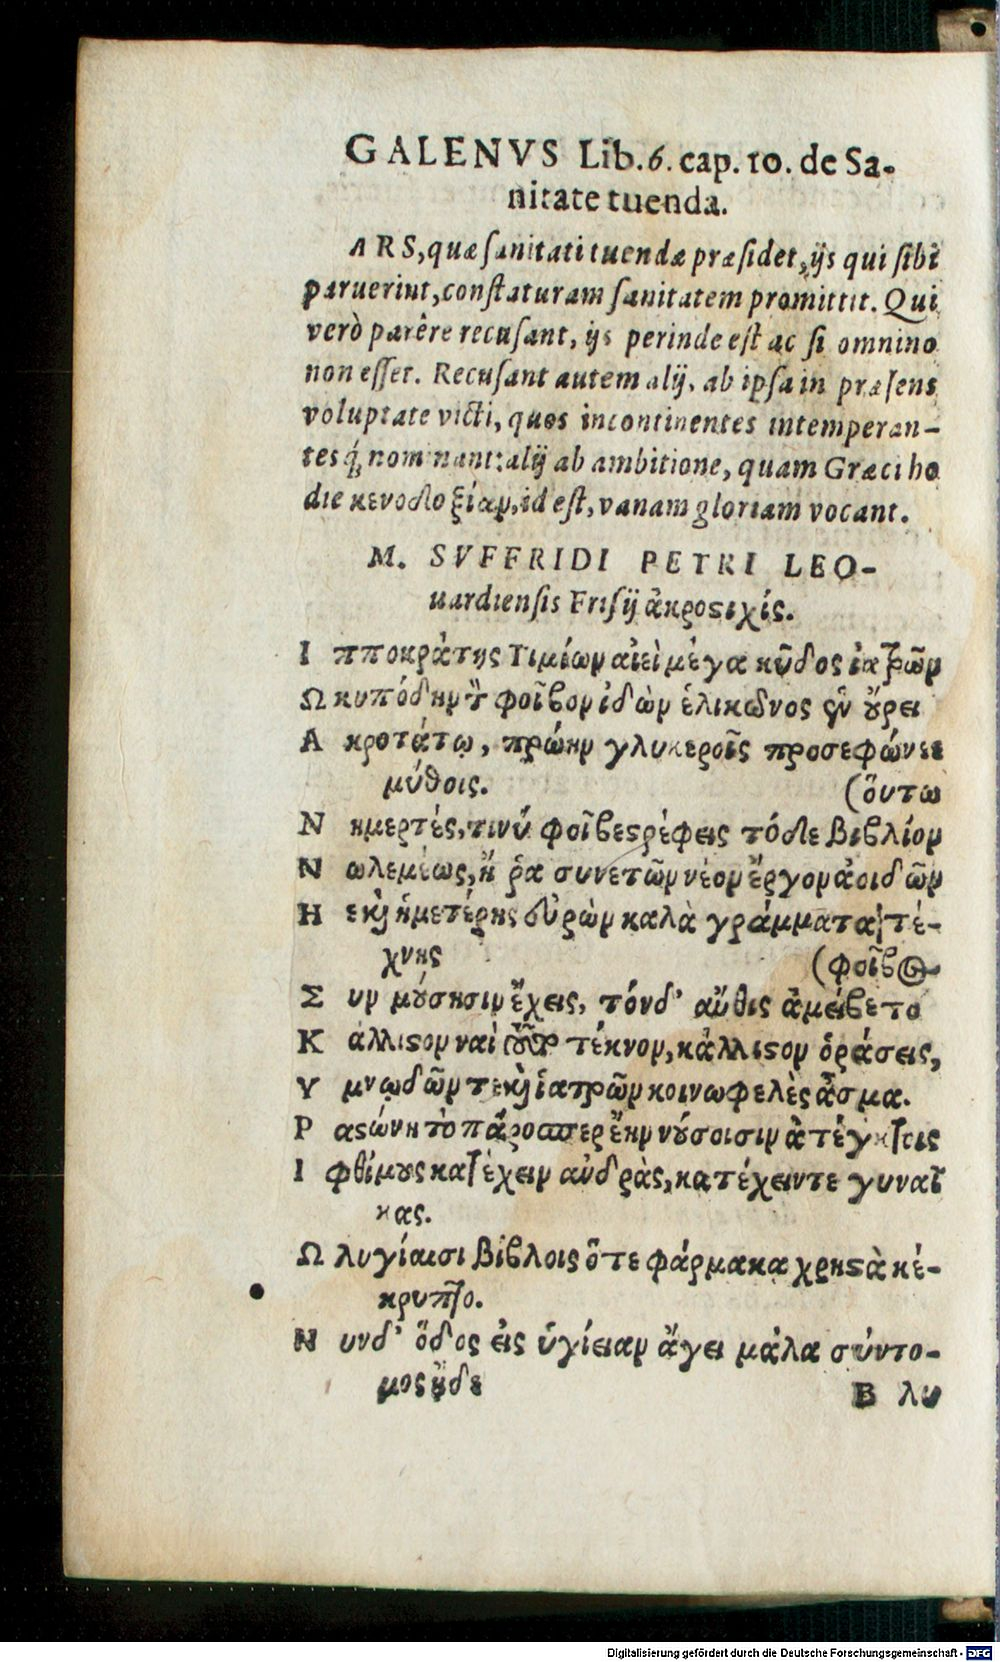 GALENVS Lib. 6. cap. 10. de Sa-
nitate tuenda.
ARS, quæ sanitati tuendæ præsidet, ijs qui sibi
paruerint, constaturam sanitatem promittit. Qui
verò parêre recusant, ijs perinde est ac si omnino
non esset. Recusant autem alij, ab ipsa in præsens
voluptate victi, quos incontinentes intemperan-
tesq́; nominant: alij ab ambitione, quam Græci ho
die κενοδοξίαν, id est, vanam gloriam vocant.
M. SVFFRIDI PETRI LEO-
uardiensis Frisij ἀκροϛιχίς.
Ι πποκράτης Τιμίων αἰεὶ μέγα κῦδος ἰατρῶν
Ω κυπόδην φοῖβον ἰδὼν ἑλικῶνος ἐν ὄυρει
Α κροτάτῳ, πρώην γλυκεροῖς προσεφώνεε
μύθοις. (ὅυτω
Ν ημερτές, τινύ φοῖβε ϛρέφεις τόδε βιβλίον
Ν ωλεμέως, ἤ ῥα συνετῶν νέον ἔργον ἀοιδῶν
Η εκὶ ἡμετέρης ἑυρὼν καλὰ γράμματα τέ-
χνης (φοῖβος
Σ υν μούσησιν ἔχεις, τόνδ' αὖθις ἀμείβετο
Κ άλλιϛον ναὶ τέκνον, κάλλιϛον ὁράσεις,
Υ μνῳδῶν τε καὶ ἰατρῶν κοινωφελὲς ἆσμα.
Ρ αϛώνη τὸ πάροσπερ ἔην νόυσοισιν
Ι φθίμους κατέχειν ἀνδρὰς, κατέχειν τε γυναῖ
κας.
Ω λυγίαισι βίβλοις ὅτε φάρμακα χρηϛὰ κέ-
κρυπτο.
Ν υνδ' ὅδος ἐις ὑγίειαν ἄγει μάλα σύντο-
μος ἥδε
B λυ
Digitalisierung gefördert durch die Deutsche Forschungsgemeinschaft - DFG